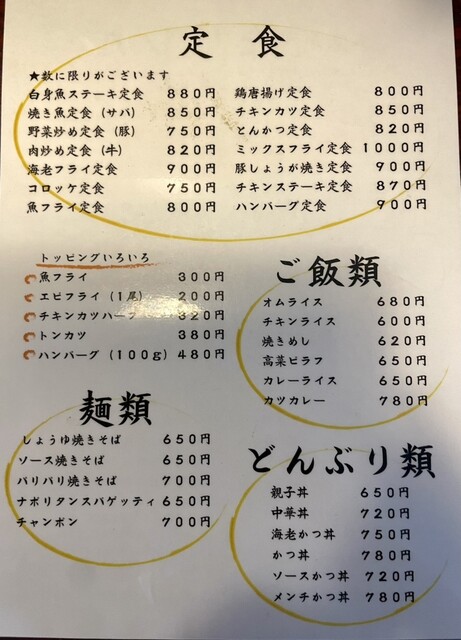 定食
★数に限りがございます
白身魚ステーキ定食 880円
焼き魚定食(サバ) 850円
野菜炒め定食(豚) 750円
肉炒め定食(牛) 820円
海老フライ定食 900円
コロッケ定食 750円
魚フライ定食 800円
鶏唐揚げ定食 800円
チキンカツ定食 850円
とんかつ定食 820円
ミックスフライ定食 1000円
豚しょうが焼き定食 900円
チキンステーキ定食 870円
ハンバーグ定食 900円
トッピングいろいろ
魚フライ 300円
エビフライ(1尾) 200円
チキンカツハーフ 320円
トンカツ 380円
ハンバーグ(100g) 480円
ご飯類
オムライス 680円
チキンライス 600円
焼きめし 620円
高菜ピラフ 650円
カレーライス 650円
カツカレー 780円
麺類
しょうゆ焼きそば 650円
ソース焼きそば 650円
パリパリ焼きそば 700円
ナポリタンスパゲッティ 650円
チャンポン 700円
どんぶり類
親子丼 650円
中華丼 720円
海老かつ丼 750円
かつ丼 780円
ソースかつ丼 720円
メンチかつ丼 780円